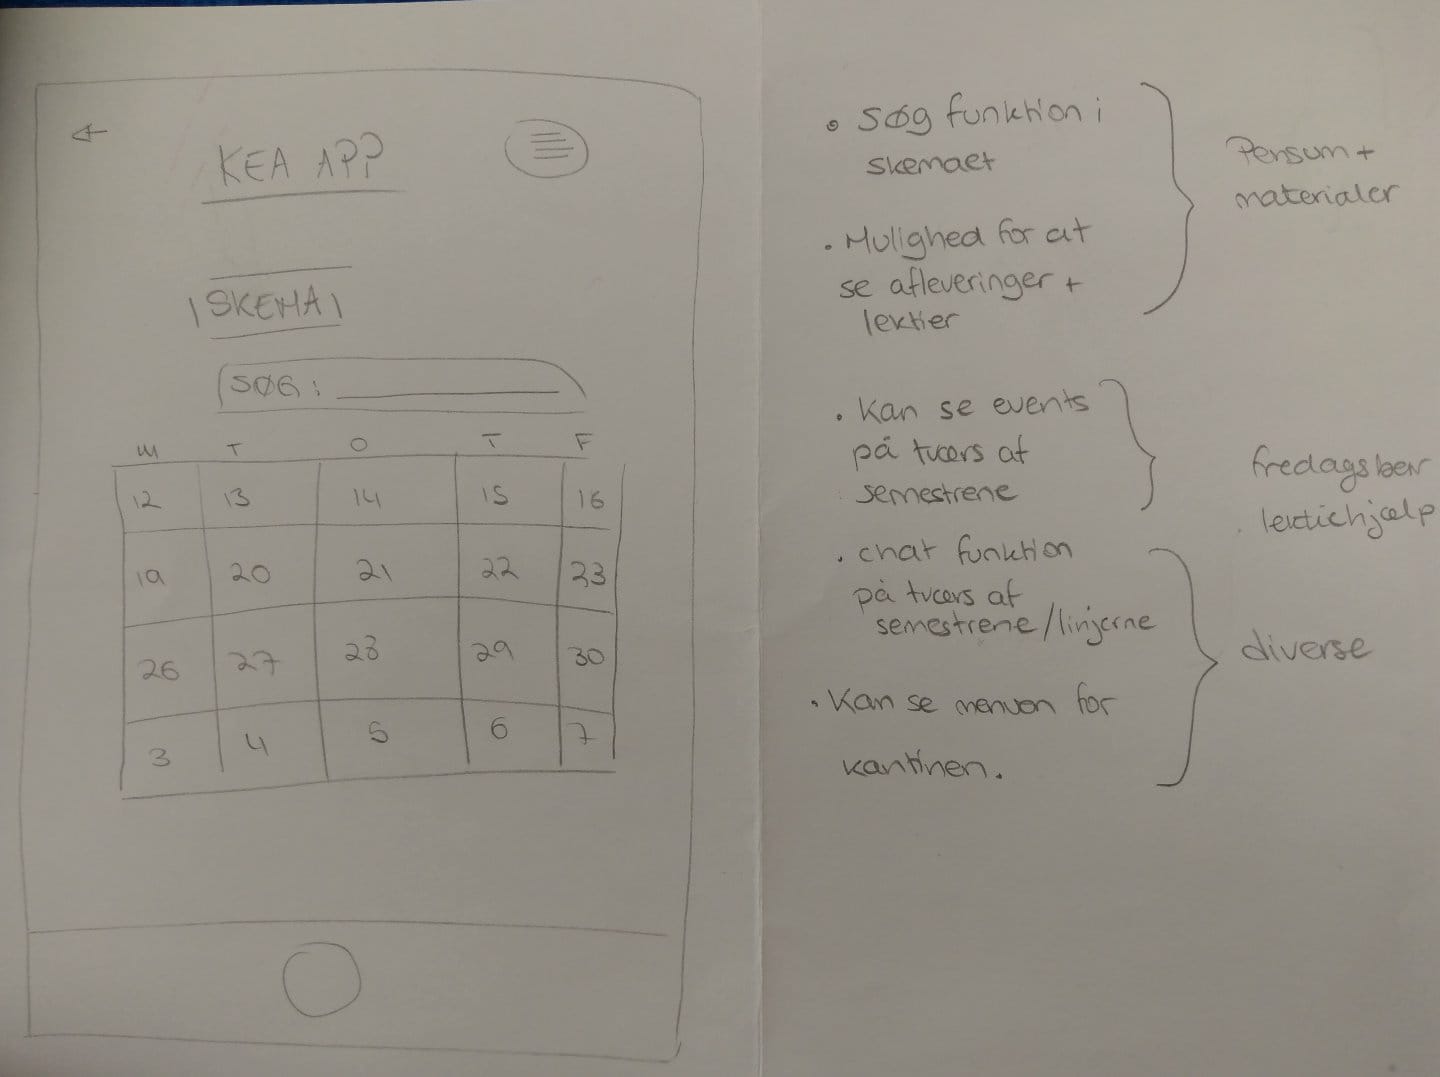 KEA APP
SKEMA
SØG:
M T O T F
12 13 14 15 16
19 20 21 22 23
26 27 28 29 30
3 4 5 6 7
• Søg funktion i
skemaet
• Mulighed for at
se afleveringer +
lektier
Pensum +
materialer
• Kan se events
på tværs af
semestrene
fredagsbar
lektiehjælp
• chat funktion
på tværs af
semestrene/linjerne
• Kan se menuen for
kantinen.
diverse